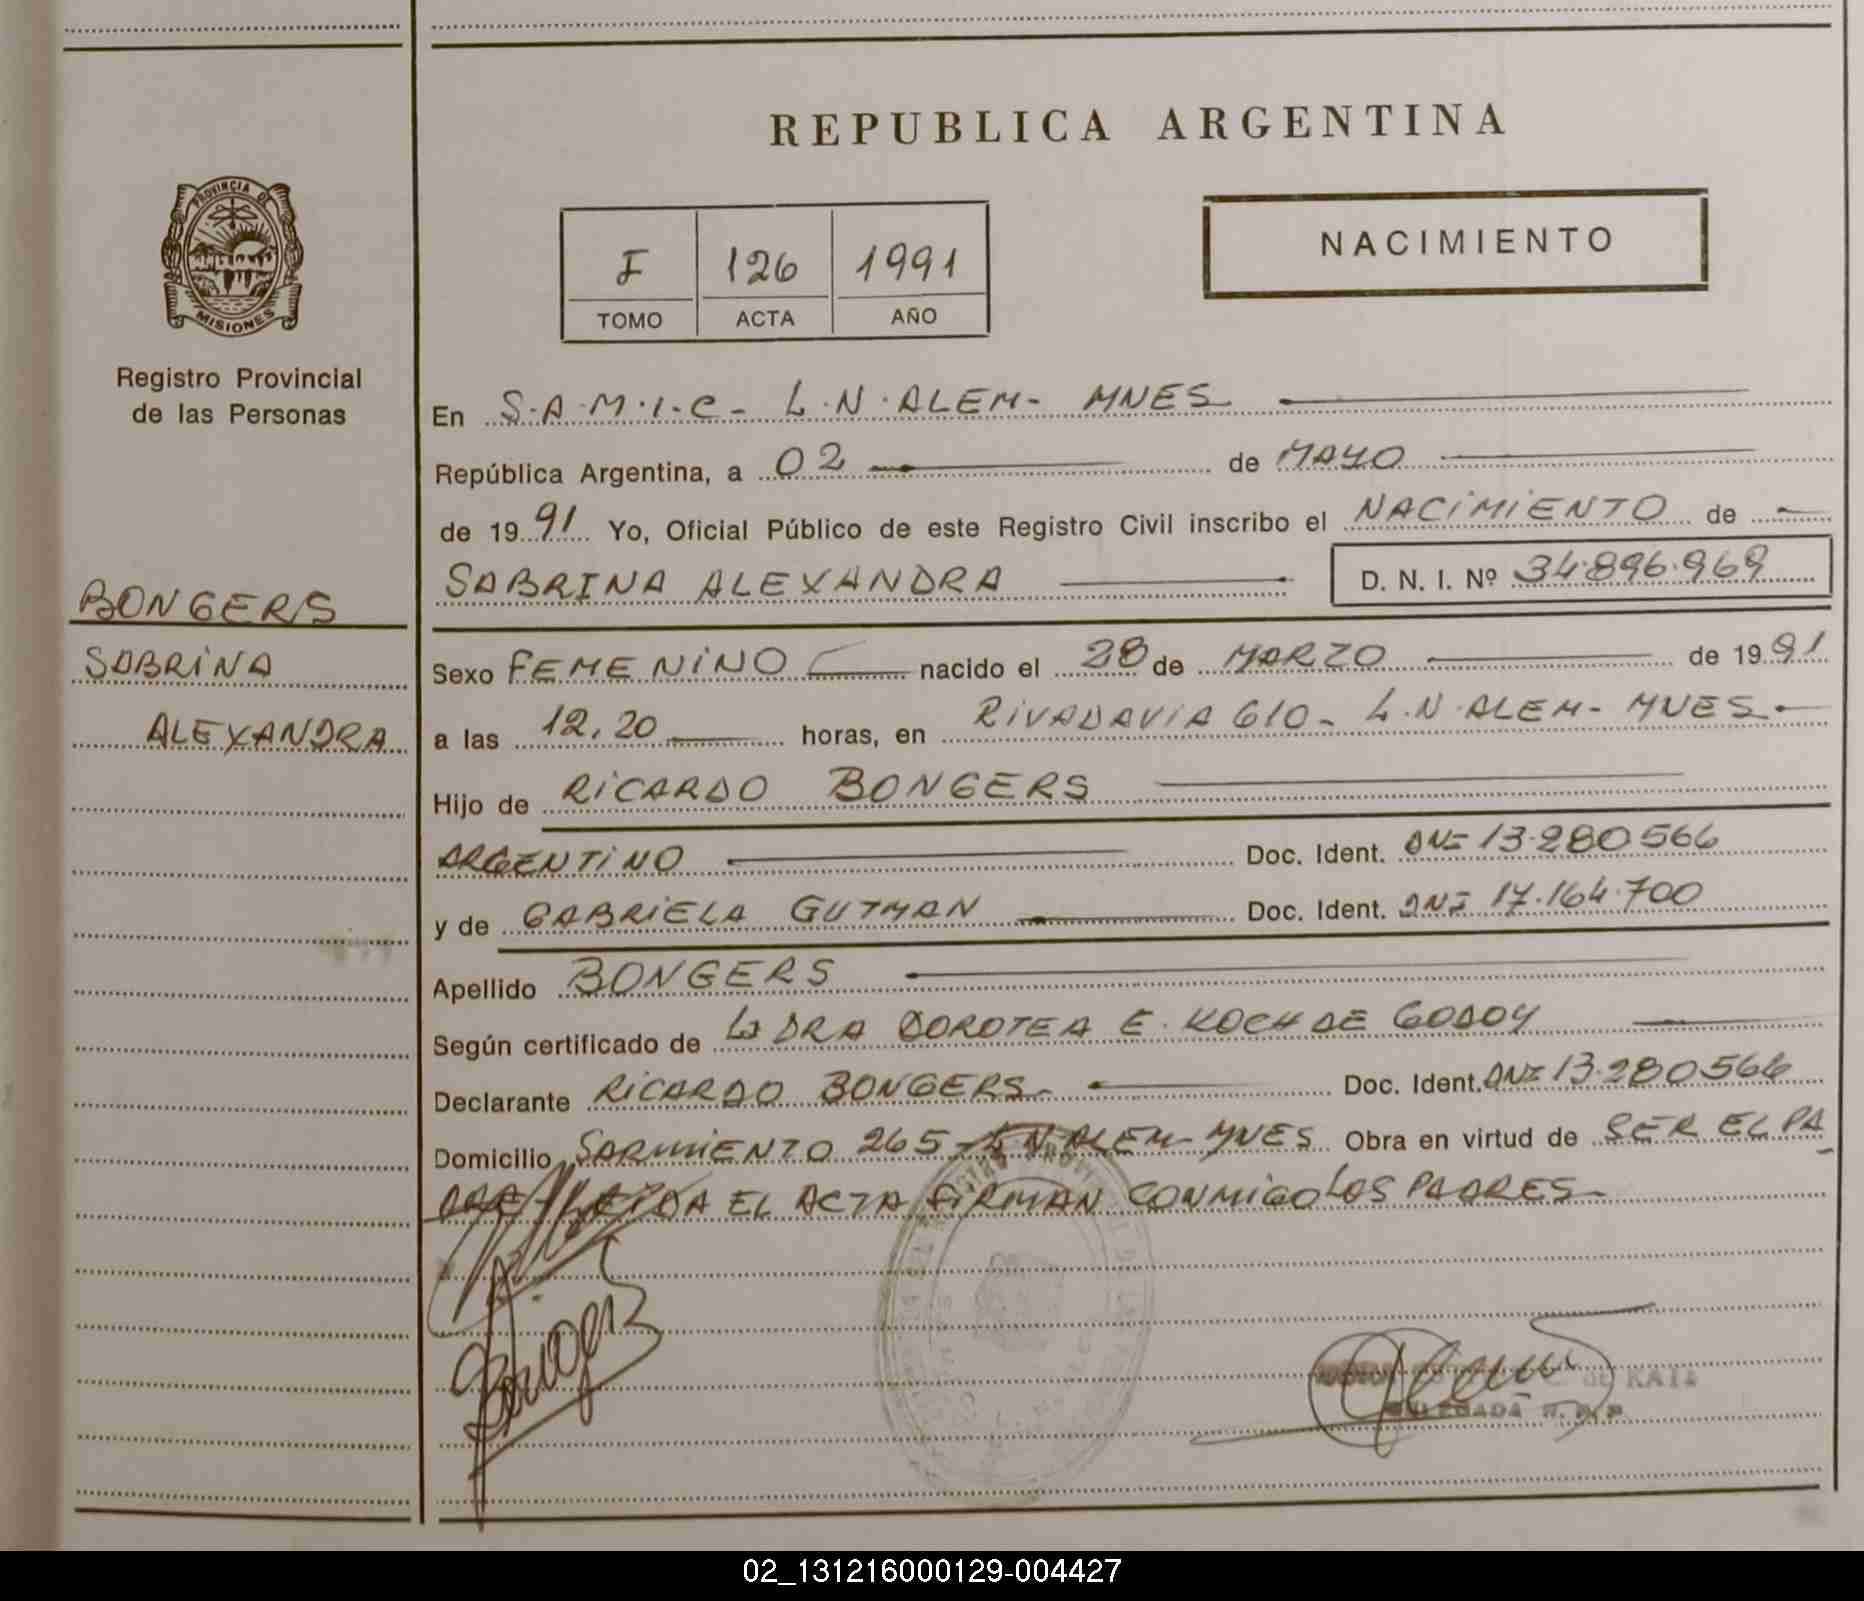 REPUBLICA ARGENTINA
PROVINCIA DE
MISIONES
Registro Provincial
de las Personas
I 126 1991
TOMO ACTA AÑO
NACIMIENTO
En S.A.M.I.C- L.N.ALEM- MNES
República Argentina, a 02 de MAYO
de 1991 Yo, Oficial Público de este Registro Civil inscribo el NACIMIENTO de
SABRINA ALEXANDRA D. N. I. Nº 34.896.969
BONGERS
SABRINA
ALEXANDRA
Sexo FEMENINO nacido el 28 de MARZO de 1991
a las 12,20 horas, en RIVADAVIA 610- L.N.ALEM- MNES-
Hijo de RICARDO BONGERS
ARGENTINO Doc. Ident. DNI 13.280566
y de GABRIELA GUTMAN Doc. Ident. DNI 17.164.700
Apellido BONGERS
Según certificado de LA DRA DOROTEA E. KOCH DE GODOY
Declarante RICARDO BONGERS- Doc. Ident. DNI 13.280566
Domicilio SARMIENTO 265-L.N.ALEM-MNES Obra en virtud de SER EL PA
DRE-LEIDA EL ACTA FIRMAN CONMIGO LOS PADRES-
Bongers
de KATZ
DELEGADA R. P. P.
02_131216000129-004427